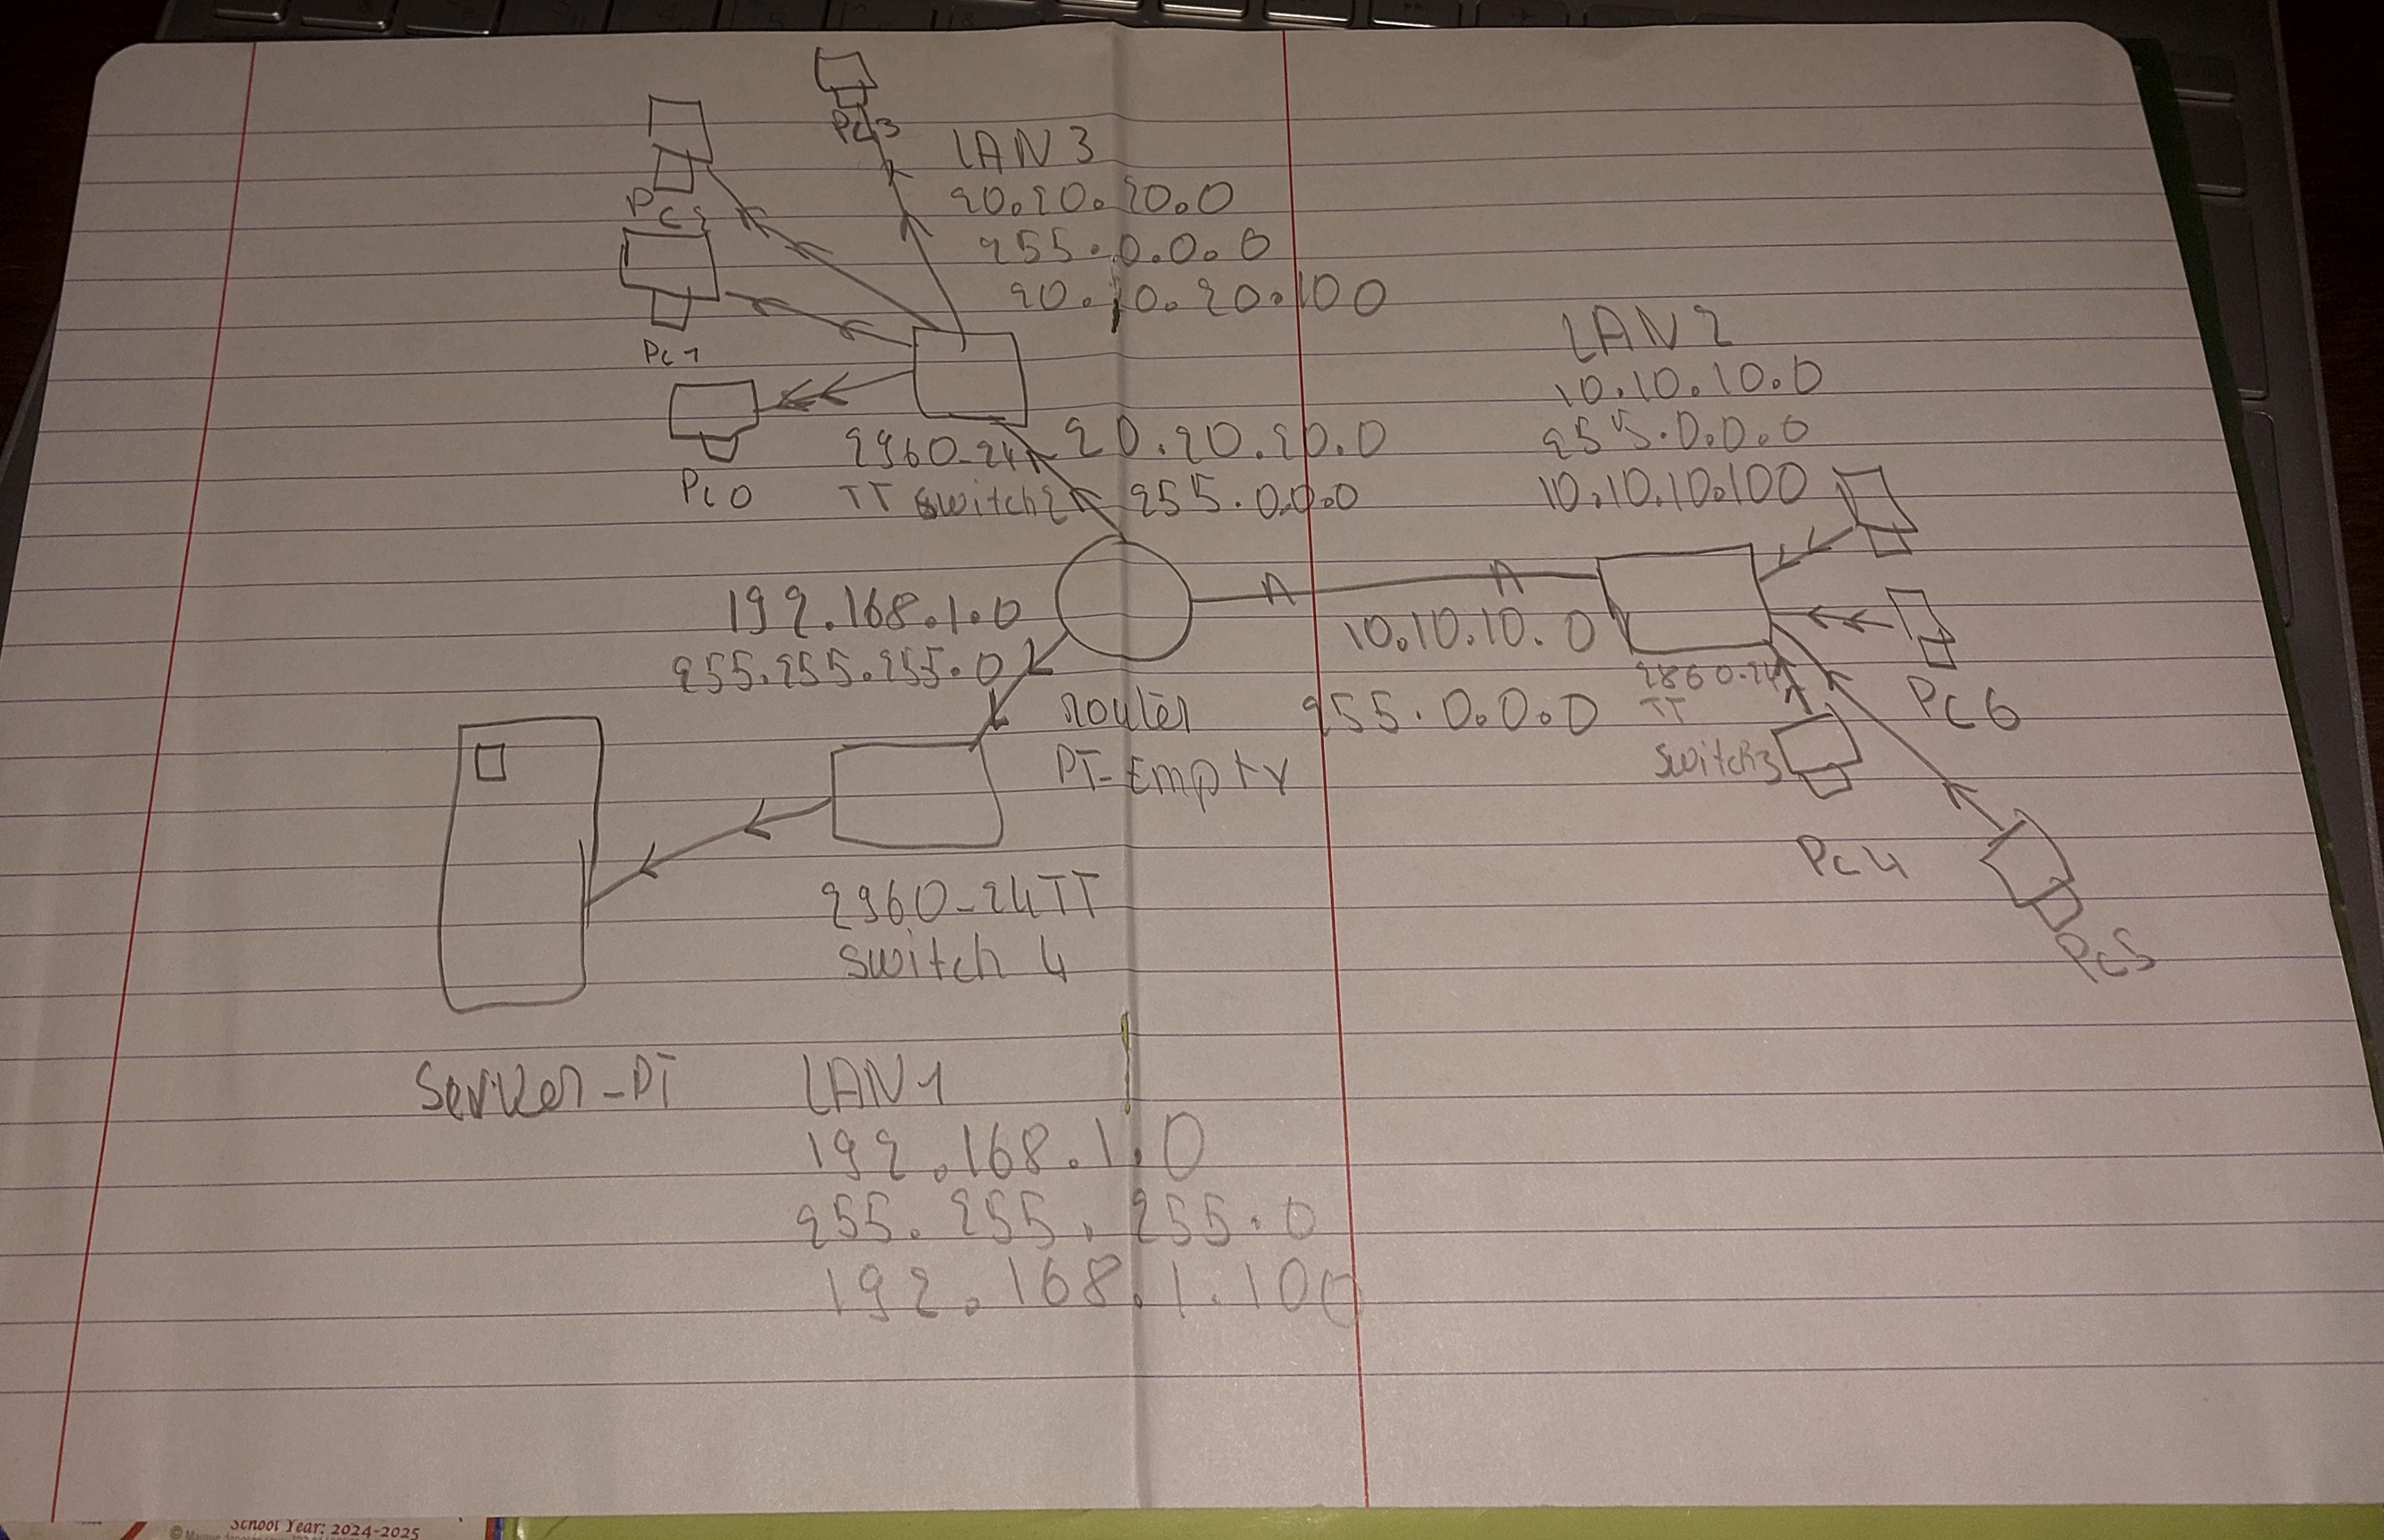 Pc3
LAN3
20.20.20.0
255.0.0.0
20.10.20.100
Pc1
Pc0
2960-24
TT switch2
20.20.20.0
255.0.0.0
LAN2
10.10.10.0
255.0.0.0
10.10.10.100
192.168.1.0
255.255.255.0
10.10.10.0
255.0.0.0
router
PT-Empty
2860-24
TT
switch3
Pc6
Pc4
Pc5
2960-24TT
switch 4
Server-PT
LAN1
192.168.1.0
255.255.255.0
192.168.1.100
School Year: 2024-2025